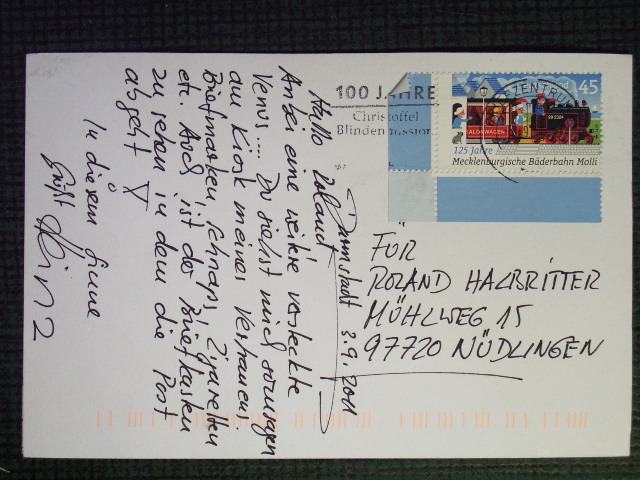 Darmstadt 3.9.2011
Hallo Roland
Anbei eine weitere versteckte
Venus... Du siehst mich
am Kiosk meines Vertrauens
Briefmarken, Schnaps, Zigaretten
etc. Auch ist der Briefkasten
zu sehen in dem die Post
abgeht
In diesem Sinne
grüßt Heinz
100 JAHRE
Christoffel
Blindenmission
BRIEFZENTRUM
45
SALONWAGEN
99 2324
125 Jahre
Mecklenburgische Bäderbahn Molli
FÜR
ROLAND HALBRITTER
MÜHLWEG 15
97720 NÜDLINGEN